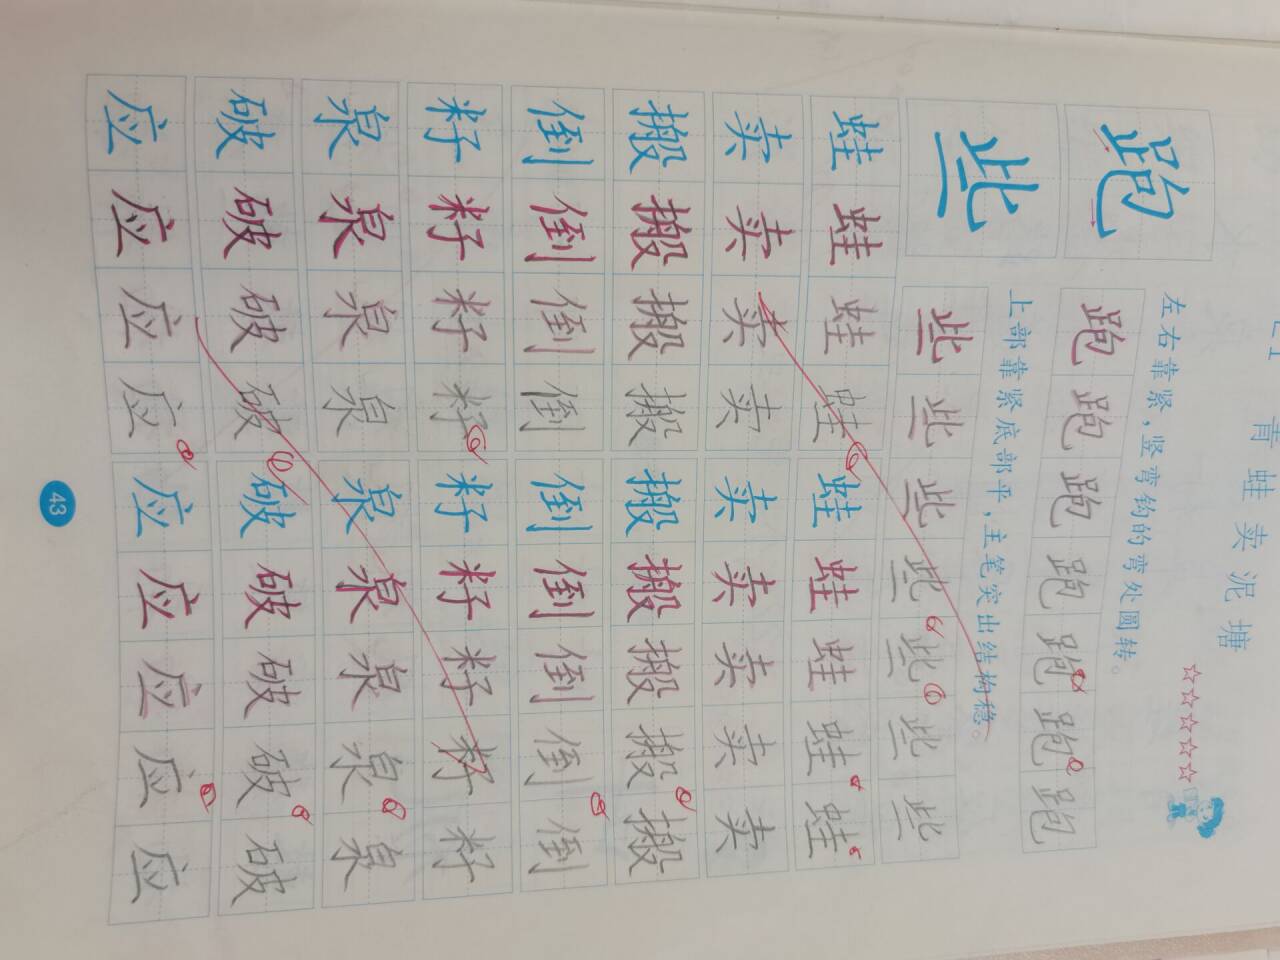 青蛙卖泥塘
☆☆☆☆☆
左右靠紧，竖弯钩的弯处圆转。
跑 跑 跑 跑 跑 跑 跑 跑
上部靠紧底部平，主笔突出结构稳。
些 些 些 些 些 些 些 些
蛙 蛙 蛙 蛙 蛙 蛙 蛙 蛙 蛙
卖 卖 卖 卖 卖 卖 卖 卖 卖
搬 搬 搬 搬 搬 搬 搬 搬 搬
倒 倒 倒 倒 倒 倒 倒 倒 倒
籽 籽 籽 籽 籽 籽 籽 籽 籽
泉 泉 泉 泉 泉 泉 泉 泉 泉
破 破 破 破 破 破 破 破 破
应 应 应 应 应 应 应 应 应
43